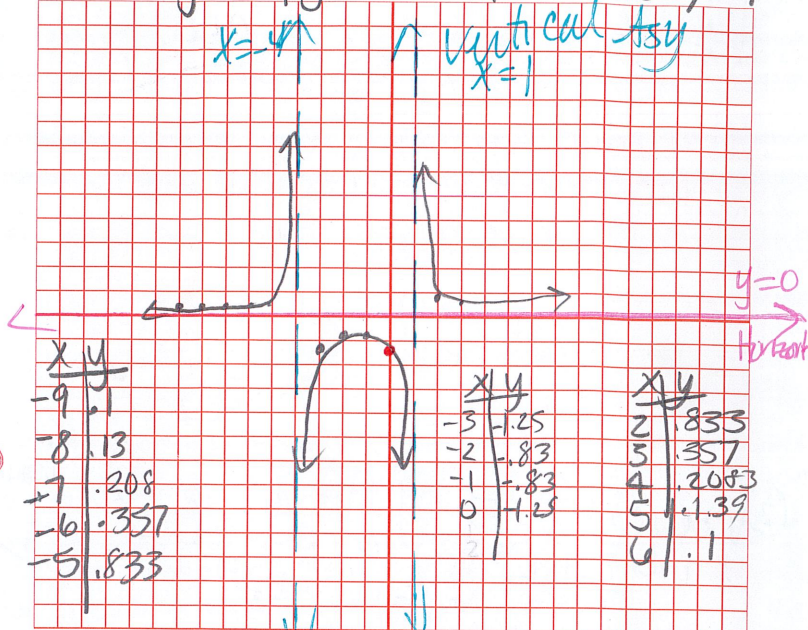 x=-4
Vertical Asy
x=1
y=0
Horizont
x y
-9 .1
-8 .13
-7 .208
-6 .357
-5 .833
x y
-3 -1.25
-2 -.83
-1 -.83
0 -1.25
x y
2 .833
3 .357
4 .2083
5 .139
6 .1